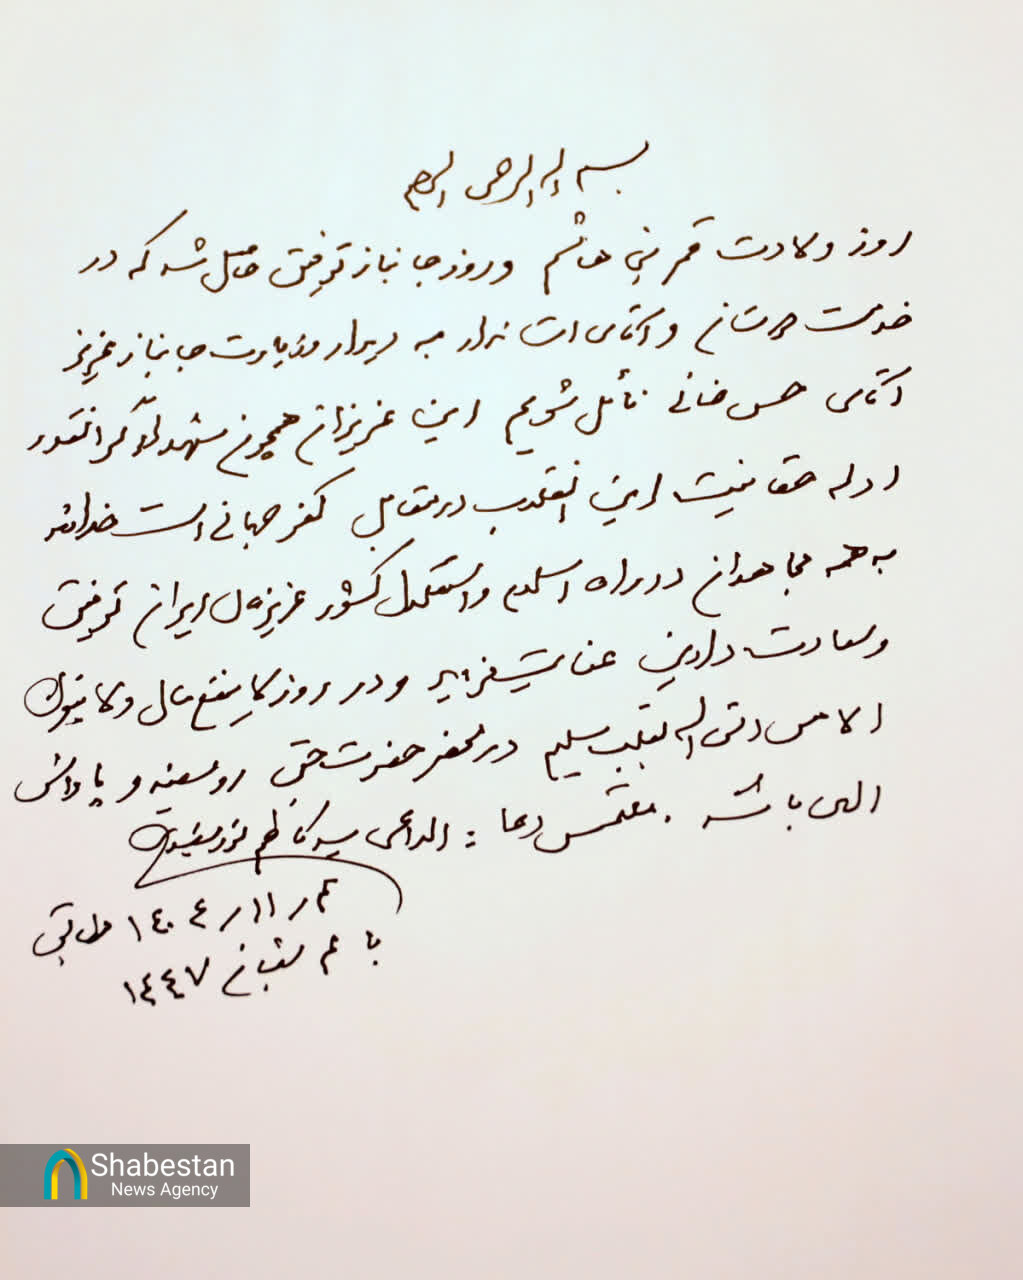 بسم الله الرحمن الرحیم
روز ولادت قمر بنی هاشم و روز جانباز توفیق حاصل شد که در
خدمت دوستان و آقای استاندار به دیدار و زیارت جانباز عزیز
آقای حسن خانی نائل شویم این عزیزان همچون شهدا
ادله حقانیت این انقلاب در مقابل کفر جهانی است خداوند
به همه مجاهدان در راه اسلام و استقلال کشور عزیزمان ایران توفیق
و سعادت دارین عنایت فرماید و در روز لاینفع مال و لا بنون
الا من اتی الله بقلب سلیم در محضر حضرت حق روسفید و پاداش
الهی باشند. ملتمس دعا : الداعی سید کاظم نورمفیدی
۳ر۱۱ر۱۴۰۴ مطابق
با ۴ شعبان ۱۴۴۷
Shabestan
News Agency